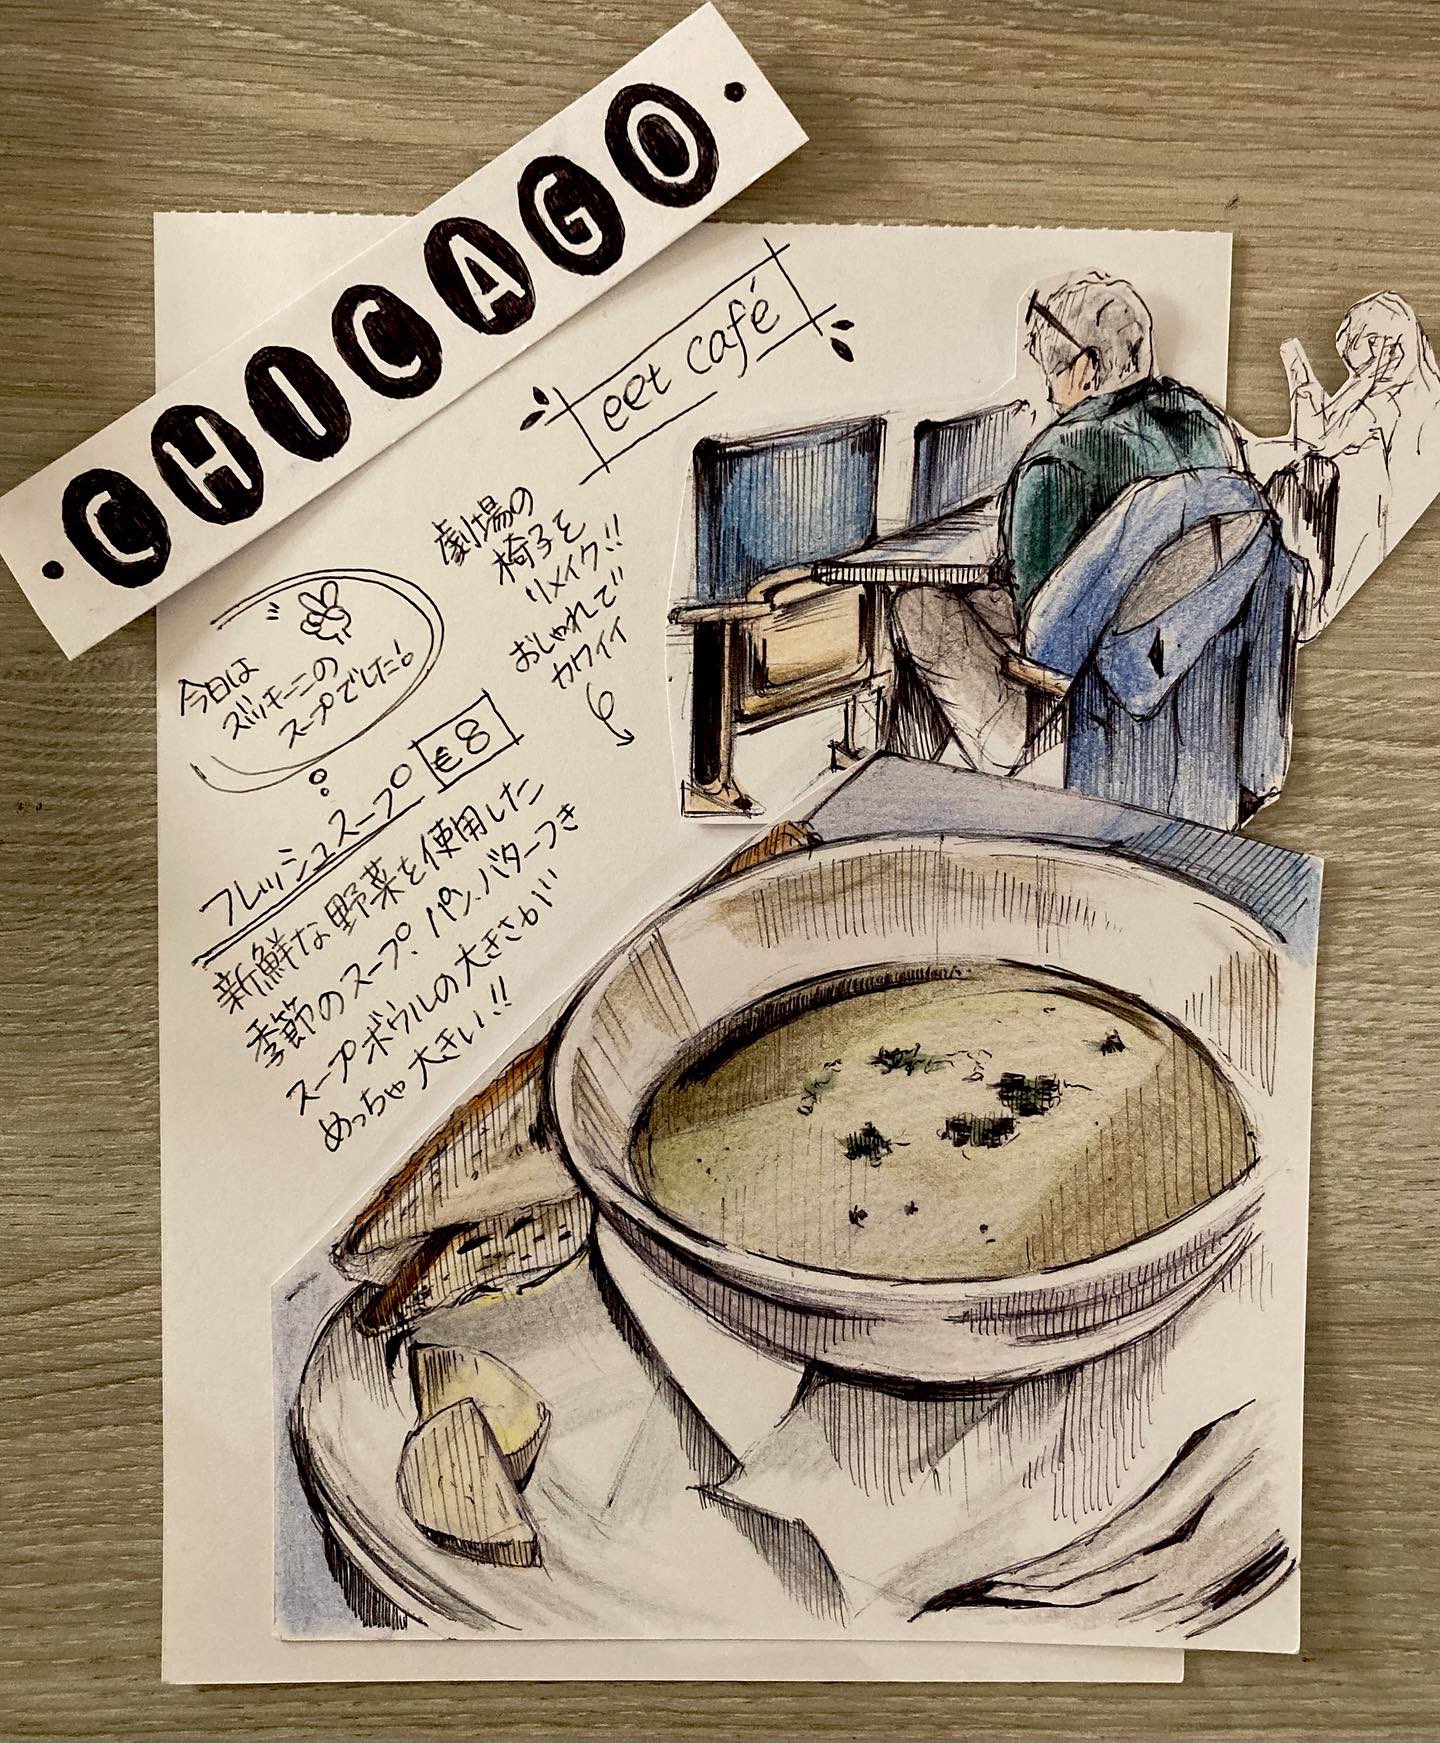 CHICAGO
eet café
劇場の
椅子を
リメイク!!
おしゃれで
カワイイ
今日は
ズッキーニの
スープでした!
フレッシュスープ €8
新鮮な野菜を使用した
季節のスープ。パン、バターつき
スープボウルの大きさが
めっちゃ大きい!!